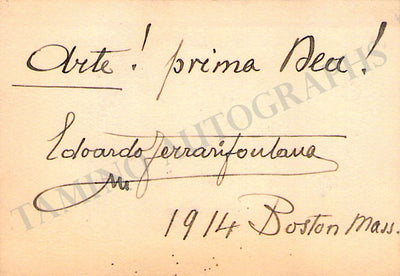 Arte! prima Dea!
Edoardo Ferrarifontana
1914 Boston Mass.
TAMINO AUTOGRAPHS